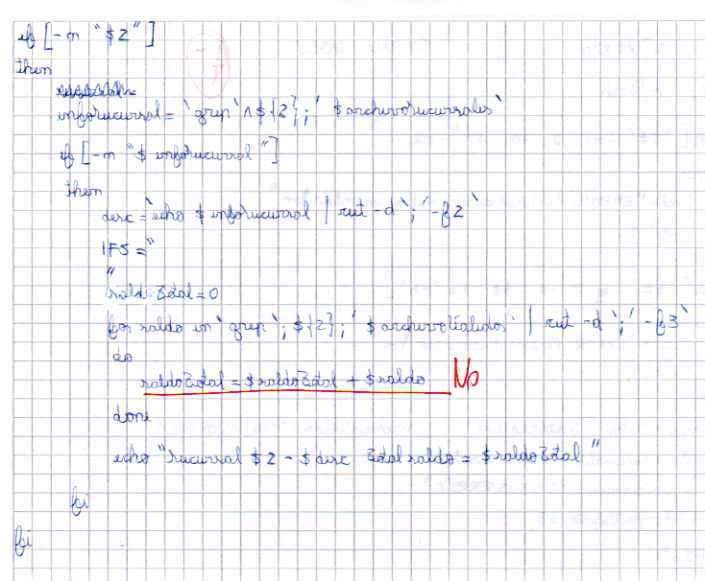 if [-n "$2"]
then
infoSucursal = `grep '^${2};' $archivoSucursales`
if [-n "$infoSucursal"]
then
desc = `echo $infoSucursal | cut -d ';' -f2`
IFS ="
"
saldoTotal=0
for saldo in `grep ';${2};' $archivo | cut -d ';' -f3`
do
saldoTotal = $saldoTotal + $saldo No
done
echo "Sucursal $2 - $desc Total saldo = $saldoTotal"
fi
fi